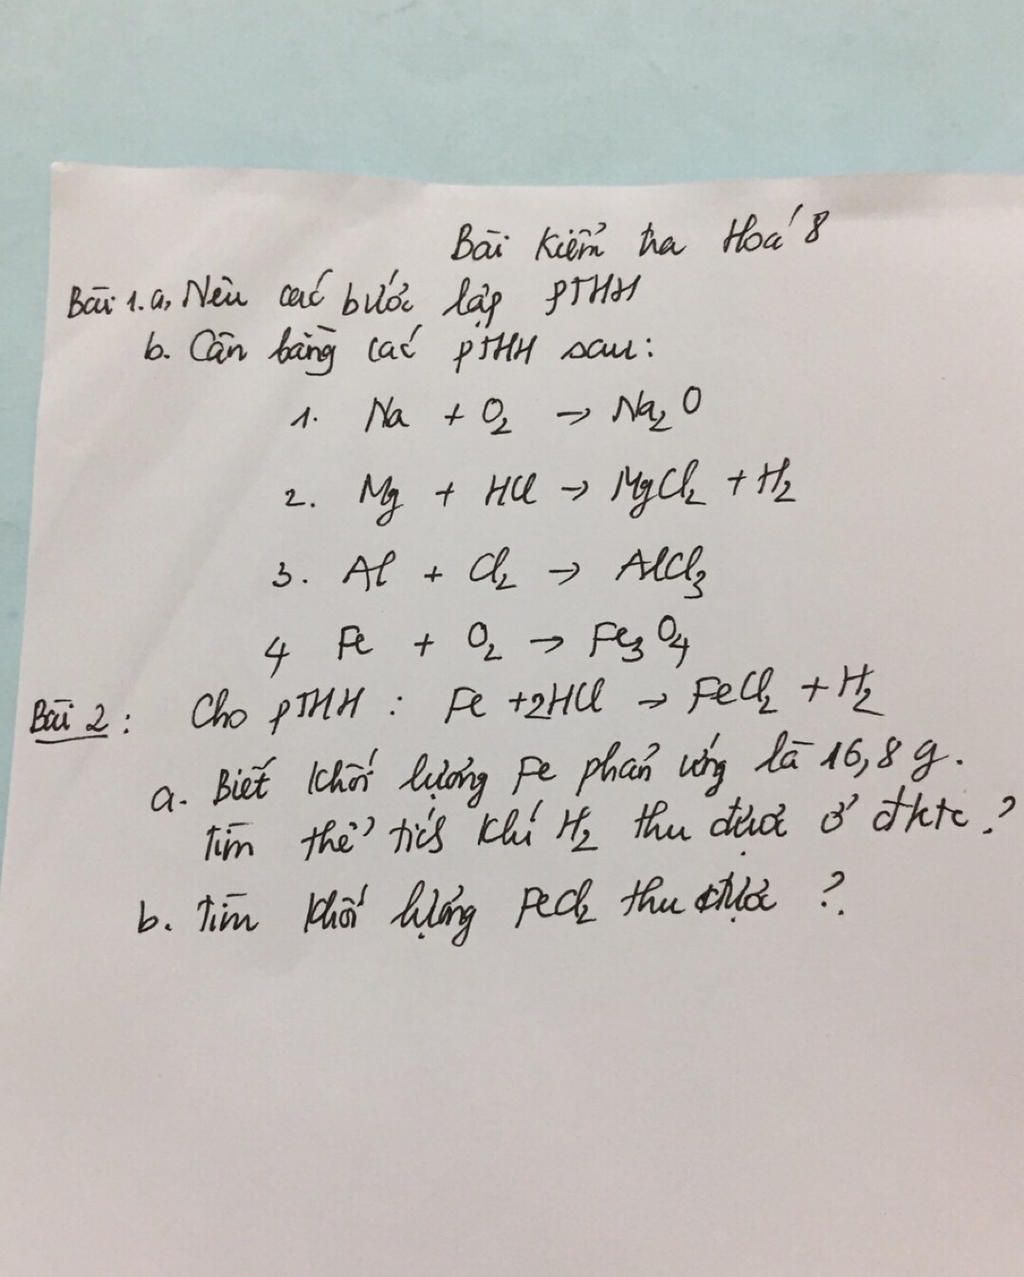 Bài kiểm tra Hoá 8
Bài 1. a, Nêu các bước lập PTHH
b. Cân bằng các PTHH sau:
1. Na + O₂ → Na₂O
2. Mg + HCl → MgCl₂ + H₂
3. Al + Cl₂ → AlCl₃
4 Fe + O₂ → Fe₃O₄
Bài 2: Cho PTHH: Fe + 2HCl → FeCl₂ + H₂
a. Biết khối lượng Fe phản ứng là 16,8 g.
Tìm thể tích khí H₂ thu được ở đktc?
b. Tìm khối lượng FeCl₂ thu được?